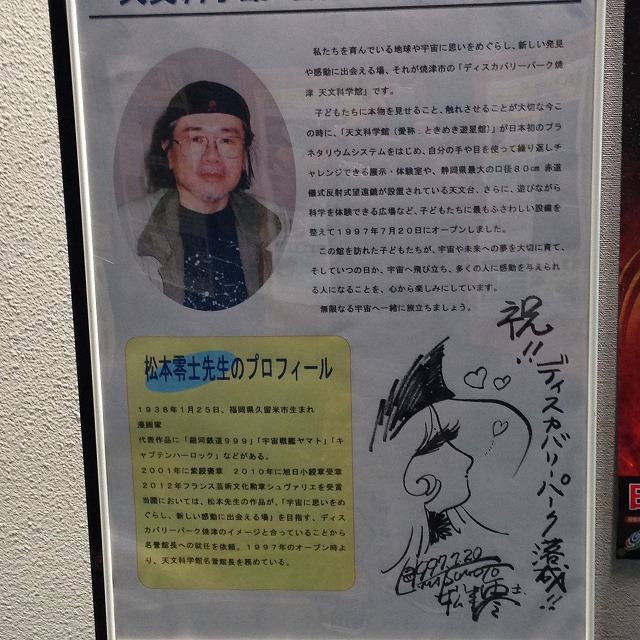 私たちを育んでいる地球や宇宙に思いをめぐらし、新しい発見
や感動に出会える場、それが焼津市の「ディスカバリーパーク焼
津 天文科学館」です。
子どもたちに本物を見せること、触れさせることが大切な今こ
の時に、「天文科学館（愛称：ときめき遊星館）」が日本初のプラ
ネタリウムシステムをはじめ、自分の手や目を使って繰り返しチ
ャレンジできる展示・体験室や、静岡県最大の口径８０㎝ 赤道
儀式反射式望遠鏡が設置されている天文台、さらに、遊びながら
科学を体験できる広場など、子どもたちに最もふさわしい設備を
整えて１９９７年７月２０日にオープンしました。
この館を訪れた子どもたちが、宇宙や未来への夢を大切に育て、
そしていつの日か、宇宙へ飛び立ち、多くの人に感動を与えられ
る人になることを、心から楽しみにしています。
無限なる宇宙へ一緒に旅立ちましょう。
松本零士先生のプロフィール
１９３８年１月２５日、福岡県久留米市生まれ
漫画家
代表作品に「銀河鉄道９９９」「宇宙戦艦ヤマト」「キ
ャプテンハーロック」などがある。
２００１年に紫綬褒章 ２０１０年に旭日小綬章受章
２０１２年フランス芸術文化勲章シュヴァリエを受賞
当園においては、松本先生の作品が、「宇宙に思いをめ
ぐらし、新しい感動に出会える場」を目指す、ディス
カバリーパーク焼津のイメージと合っていることから
名誉館長への就任を依頼。１９９７年のオープン時よ
り、天文科学館名誉館長を務めている。
祝!!
ディスカバリーパーク落成!!
1997.7.20
松本零士